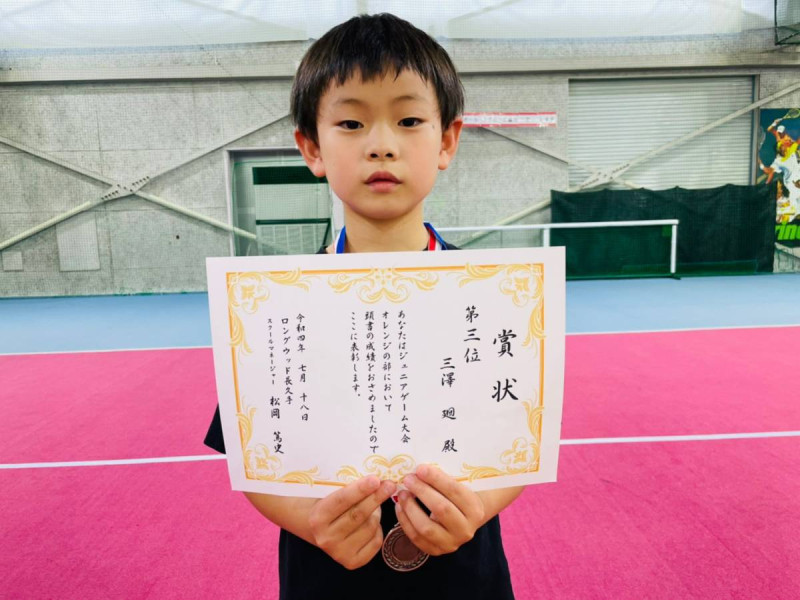 賞状
第三位
三澤 廻 殿
あなたはジュニアゲーム大会
オレンジの部において
頭書の成績をおさめましたので
ここに表彰します。
令和四年 七月 十八日
ロングウッド長久手
スクールマネージャー 松岡 篤史